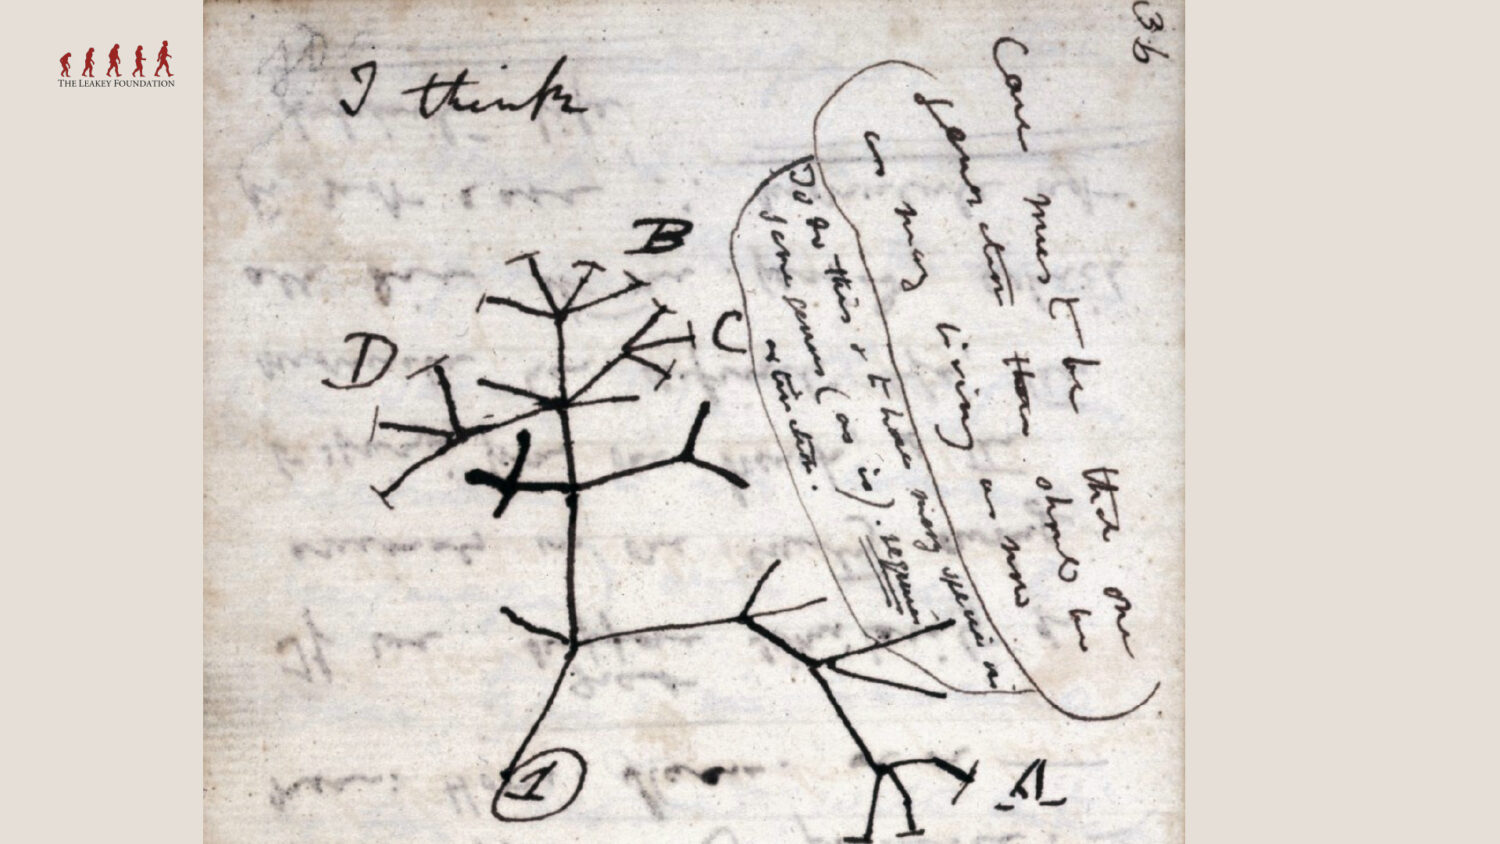 THE LEAKEY FOUNDATION
36
I think
Case must be that one
generation then should be
as many living as now
To do this & to have many species in
same genus (as is). requires
extinction.
B
C
D
A
1